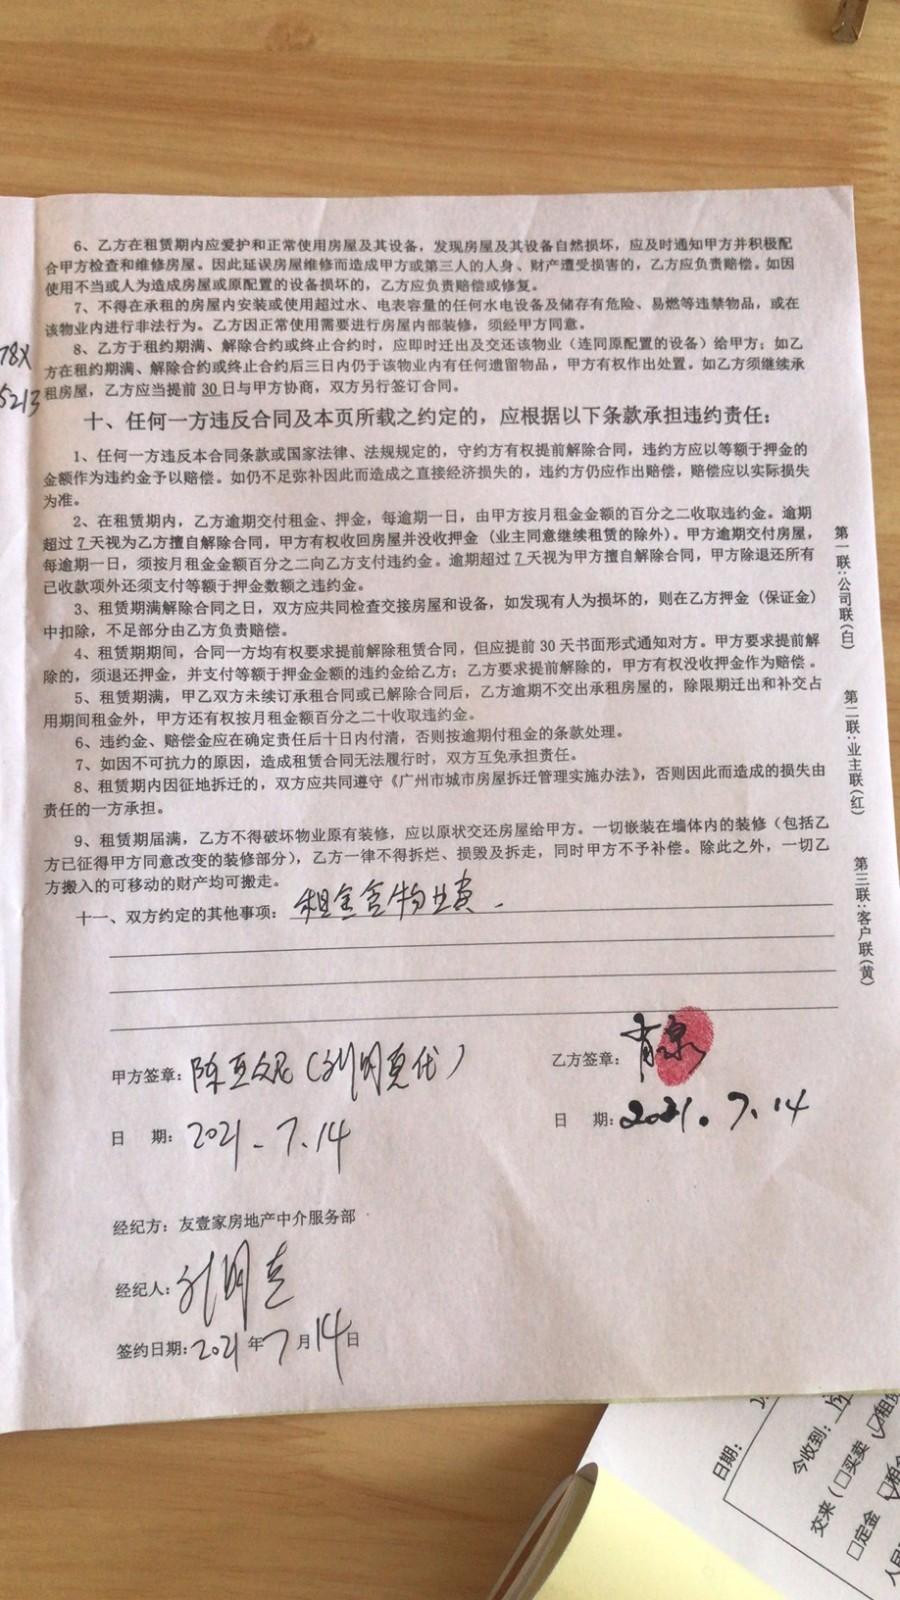 6、乙方在租赁期内应爱护和正常使用房屋及其设备，发现房屋及其设备自然损坏，应及时通知甲方并积极配
合甲方检查和维修房屋。因此延误房屋维修而造成甲方或第三人的人身、财产遭受损害的，乙方应负责赔偿。如因
使用不当或人为造成房屋或原配置的设备损坏的，乙方应负责赔偿或修复。
7、不得在承租的房屋内安装或使用超过水、电表容量的任何水电设备及储存有危险、易燃等违禁物品，或在
该物业内进行非法行为。乙方因正常使用需要进行房屋内部装修，须经甲方同意。
8、乙方于租约期满、解除合约或终止合约时，应即时迁出及交还该物业（连同原配置的设备）给甲方；如乙
方在租约期满、解除合约或终止合约后三日内仍于该物业内有任何遗留物品，甲方有权作出处置。如乙方须继续承
租房屋，乙方应当提前30日与甲方协商，双方另行签订合同。
78X
5213
十、任何一方违反合同及本页所载之约定的，应根据以下条款承担违约责任：
1、任何一方违反本合同条款或国家法律、法规规定的，守约方有权提前解除合同，违约方应以等额于押金的
金额作为违约金予以赔偿。如仍不足弥补因此而造成之直接经济损失的，违约方仍应作出赔偿，赔偿应以实际损失
为准。
2、在租赁期内，乙方逾期交付租金、押金，每逾期一日，由甲方按月租金金额的百分之二收取违约金。逾期
超过7天视为乙方擅自解除合同，甲方有权收回房屋并没收押金（业主同意继续租赁的除外）。甲方逾期交付房屋，
每逾期一日，须按月租金金额百分之二向乙方支付违约金。逾期超过7天视为甲方擅自解除合同，甲方除退还所有
已收款项外还须支付等额于押金数额之违约金。
3、租赁期满解除合同之日，双方应共同检查交接房屋和设备，如发现有人为损坏的，则在乙方押金（保证金）
中扣除，不足部分由乙方负责赔偿。
4、租赁期期间，合同一方均有权要求提前解除租赁合同，但应提前30天书面形式通知对方。甲方要求提前解
除的，须退还押金，并支付等额于押金金额的违约金给乙方；乙方要求提前解除的，甲方有权没收押金作为赔偿。
5、租赁期满，甲乙双方未续订承租合同或已解除合同后，乙方逾期不交出承租房屋的，除限期迁出和补交占
用期间租金外，甲方还有权按月租金额百分之二十收取违约金。
6、违约金、赔偿金应在确定责任后十日内付清，否则按逾期付租金的条款处理。
7、如因不可抗力的原因，造成租赁合同无法履行时，双方互免承担责任。
8、租赁期内因征地拆迁的，双方应共同遵守《广州市城市房屋拆迁管理实施办法》，否则因此而造成的损失由
责任的一方承担。
9、租赁期届满，乙方不得破坏物业原有装修，应以原状交还房屋给甲方。一切嵌装在墙体内的装修（包括乙
方已征得甲方同意改变的装修部分），乙方一律不得拆烂、损毁及拆走，同时甲方不予补偿。除此之外，一切乙
方搬入的可移动的财产均可搬走。
十一、双方约定的其他事项：租金含物业费.
第一联：公司联（白）
第二联：业主联（红）
第三联：客户联（黄）
甲方签章：陈
乙方签章：肖
日 期：2021.7.14
日 期：2021.7.14
经纪方：友壹家房地产中介服务部
经纪人：
签约日期：2021年7月14日
日期：
今收到：
交来（□买卖
□定金